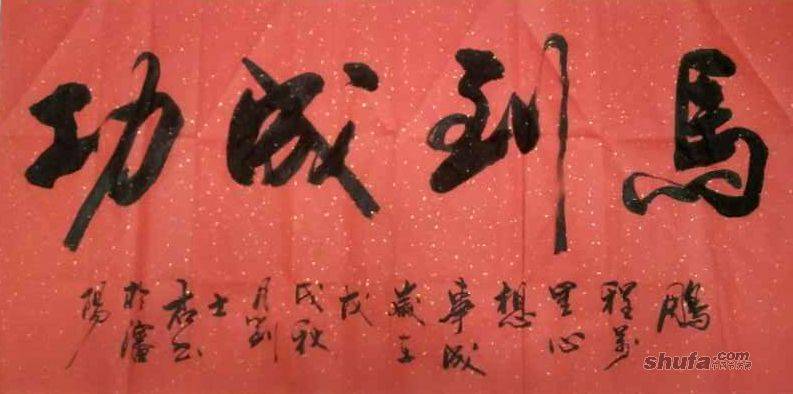 馬到成功
鵬
程萬
里心
想
事成
歲在
戊
戌秋
月劉
士
书
於瀋
陽
shufa.com